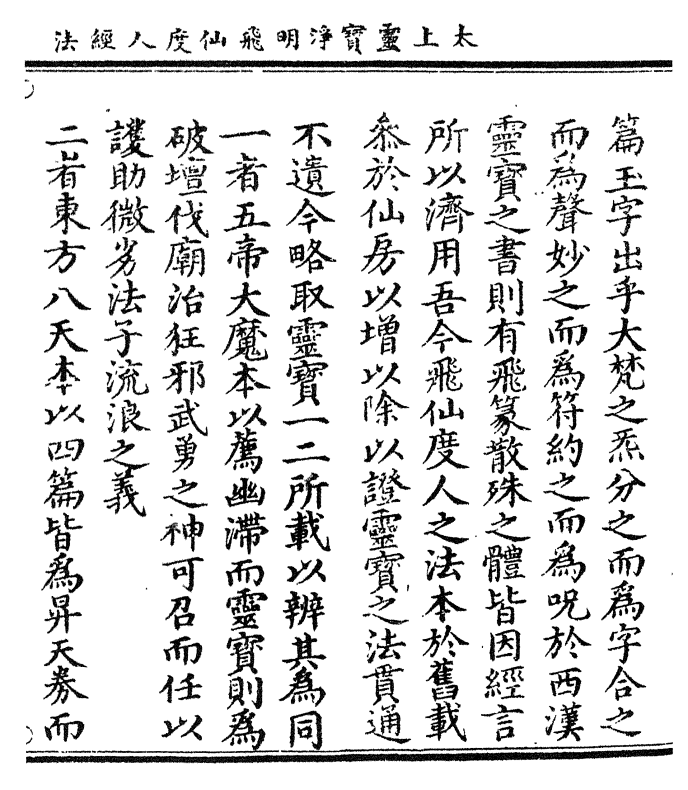 太上靈寶淨明飛仙度人經法
篇玉字出乎大梵之炁分之而爲字合之
而爲聲妙之而爲符約之而爲呪於西漢
靈寶之書則有飛篆散殊之體皆因經言
所以濟用吾今飛仙度人之法本於舊載
叅於仙房以增以除以證靈寶之法貫通
不遺今略取靈寶一二所載以辨其爲同
一者五帝大魔本以薦幽滯而靈寶則爲
破壇伐廟治狂邪武勇之神可召而任以
護助微劣法子流浪之義
二者東方八天本以四篇皆爲昇天券而